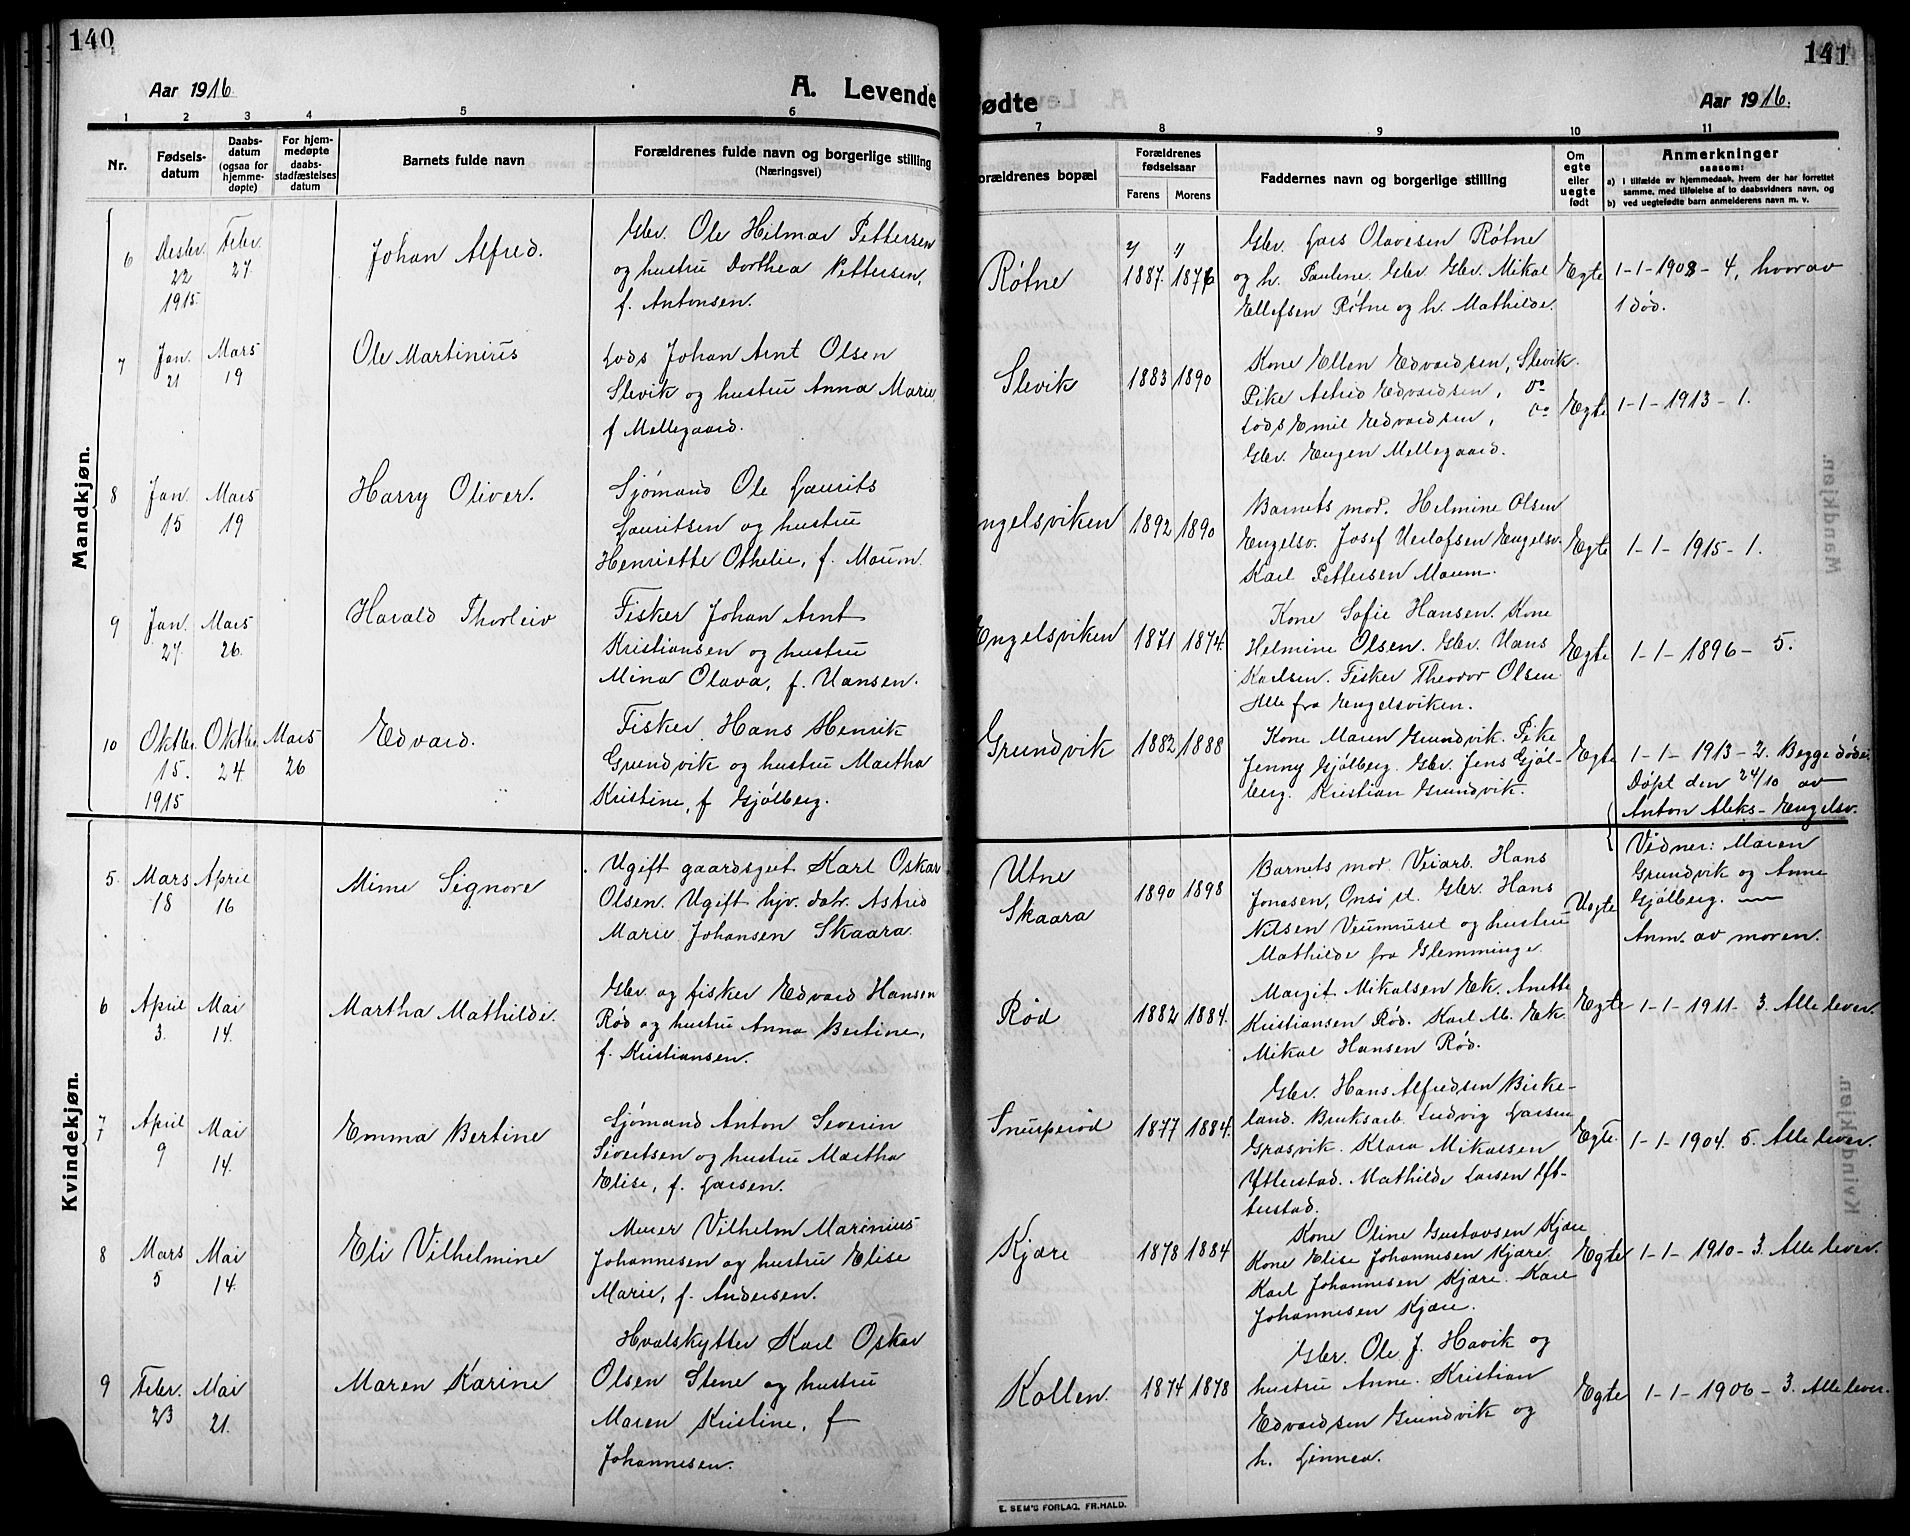 140
Aar 1916
A. Levende
1 2 3 4 5 6
Nr.
Fødsels-
datum
Daabs-
datum
(ogsaa for
hjemme-
døpte)
For hjem-
medøpte
daabs-
stadfæstelses
datum
Barnets fulde navn
Forældrenes fulde navn og borgerlige stilling
(Næringsvei)
Mandkjøn.
6
Desbr.
22
1915.
Febr.
27.
Johan Alfred.
Gbr. Ole Hilmar Pettersen
og hustru Dorthea Pettersen,
f. Antonsen.
7
Jan.
21
Mars
19
Ole Martinius
Lods Johan Arnt Olsen
Slevik og hustru Anna Marie
f Mellegaard.
8
Jan.
15
Mars
19
Harry Oliver.
Sjømand Ole Laurits
Lauritsen og hustru
Henriette Othelie, f. Maum.
9
Jan.
27.
Mars
26.
Harald Thorleiv
Fisker Johan Arnt
Kristiansen og hustru
Mina Olava, f. Hansen.
10
Oktbr.
15.
1915
Oktbr.
24
Mars
26
Edvard.
Fisker Hans Henrik
Grundvik og hustru Martha
Kristine, f Gjølberg.
Kvindekjøn.
5.
Mars
18
April
16
Mime Signore
Ugift gaardsgut Karl Oskar
Olsen. Ugift hjv. datr. Astrid
Marie Johansen Skaara.
6
April
3.
Mai
14.
Martha Mathilde.
Gbr. og fisker Edvard Hansen
Rød og hustru Anna Bertine,
f. Kristiansen.
7
April
9
Mai
14.
Emma Bertine
Sjømand Anton Severin
Sivertsen og hustru Martha
Elise, f. Larsen.
8
Mars
5
Mai
14.
Eli Vilhelmine
Murer Vilhelm Marinius
Johannesen og hustru Elise
Marie, f. Andersen.
9
Febr.
23
Mai
21.
Maren Karine
Hvalskytter Karl Oskar
Olsen Stene og hustru
Maren Kristine, f
Johannesen.
141
ødte
Aar 1916.
7 8 9 10 11
orældrenes bopæl
Forældrenes
fødselsaar
Farens Morens
Faddernes navn og borgerlige stilling
Om
egte
eller
uegte
født
Anmerkninger
saasom:
a) i tilfælde av hjemmedaab, hvem der har forrettet
samme, med tilføielse af to daabsvidners navn, og
b) ved uegtefødte barn anmelderens navn m. v.
Røtne
1887. 1876
Gbr. Lars Olavesen Røtne
og h. Pauline. Gbr. Mikal
Ellefsen Røtne og h. Mathilde.
Egte
1-1-1908-4, hvorav
1 død.
Slevik
1883 1890
Kone Ellen Edvardsen, Slevik.
Pike Astrid Edvardsen, do
Lods Emil Edvardsen, do
Gbr. Eugen Mellegaard.
Egte
1-1-1913-1.
ngelsviken
1892 1890
Barnets mor. Helmine Olsen
Engelsv. Josef Detlofsen Engelsv.
Karl Pettersen Maum.
Egte
1-1-1915-1.
Engelsviken
1871 1874.
Kone Sofie Hansen. Kone
Helmine Olsen. Gbr. Hans
Karlsen. Fisker Theodor Olsen
Alle fra Engelsviken.
Egte
1-1-1896-5.
Grundvik
1882 1888
Kone Maren Grundvik. Pike
Jenny Gjølberg. Gbr. Jens Gjøl-
berg. Kristian Grundvik.
Egte
1-1-1913-2. Begge døde.
Døpt den 24/10 av
Anton Aleks- Engelsv.
Vidner: Maren
Grundvik og Anne
Gjølberg.
Utne
Skaara
1890 1898
Barnets mor. Veiarb. Hans
Jonasen, Onsø st. Gbr. Hans
Nilsen Veumhuset og hustru
Mathilde fra Glemminge.
Uegte
Anm. av moren.
Rød
1882 1884.
Margit Mikalsen Ek. Anette
Kristiansen Rød. Karl M. Ek.
Mikal Hansen Rød.
Egte
1-1-1911-3. Alle lever.
Snuperød
1877 1884.
Gbr. Hans Alfredsen Birke-
land. Bruksarb. Ludvig Larsen
Græsvik. Klara Mikalsen
Ytterstad. Mathilde Larsen Yt-
terstad.
Egte.
1-1-1904. 5. Alle lever.
Kjære
1878 1884
Kone Oline Gustavsen Kjære
Kone Elise Johannesen Kjære.
Karl Johannesen Kjære. Kare
Johannesen Kjære.
Egte
1-1-1910-3. Alle lever.
Kollen.
1874 1878
Gbr. Ole J. Havik og
hustru Anne. Kristian
Edvardsen Grundvik og
h. Linnea.
Egte
1-1-1906-3. Alle lever.
E. SEM'S FORLAG, FR.HALD.